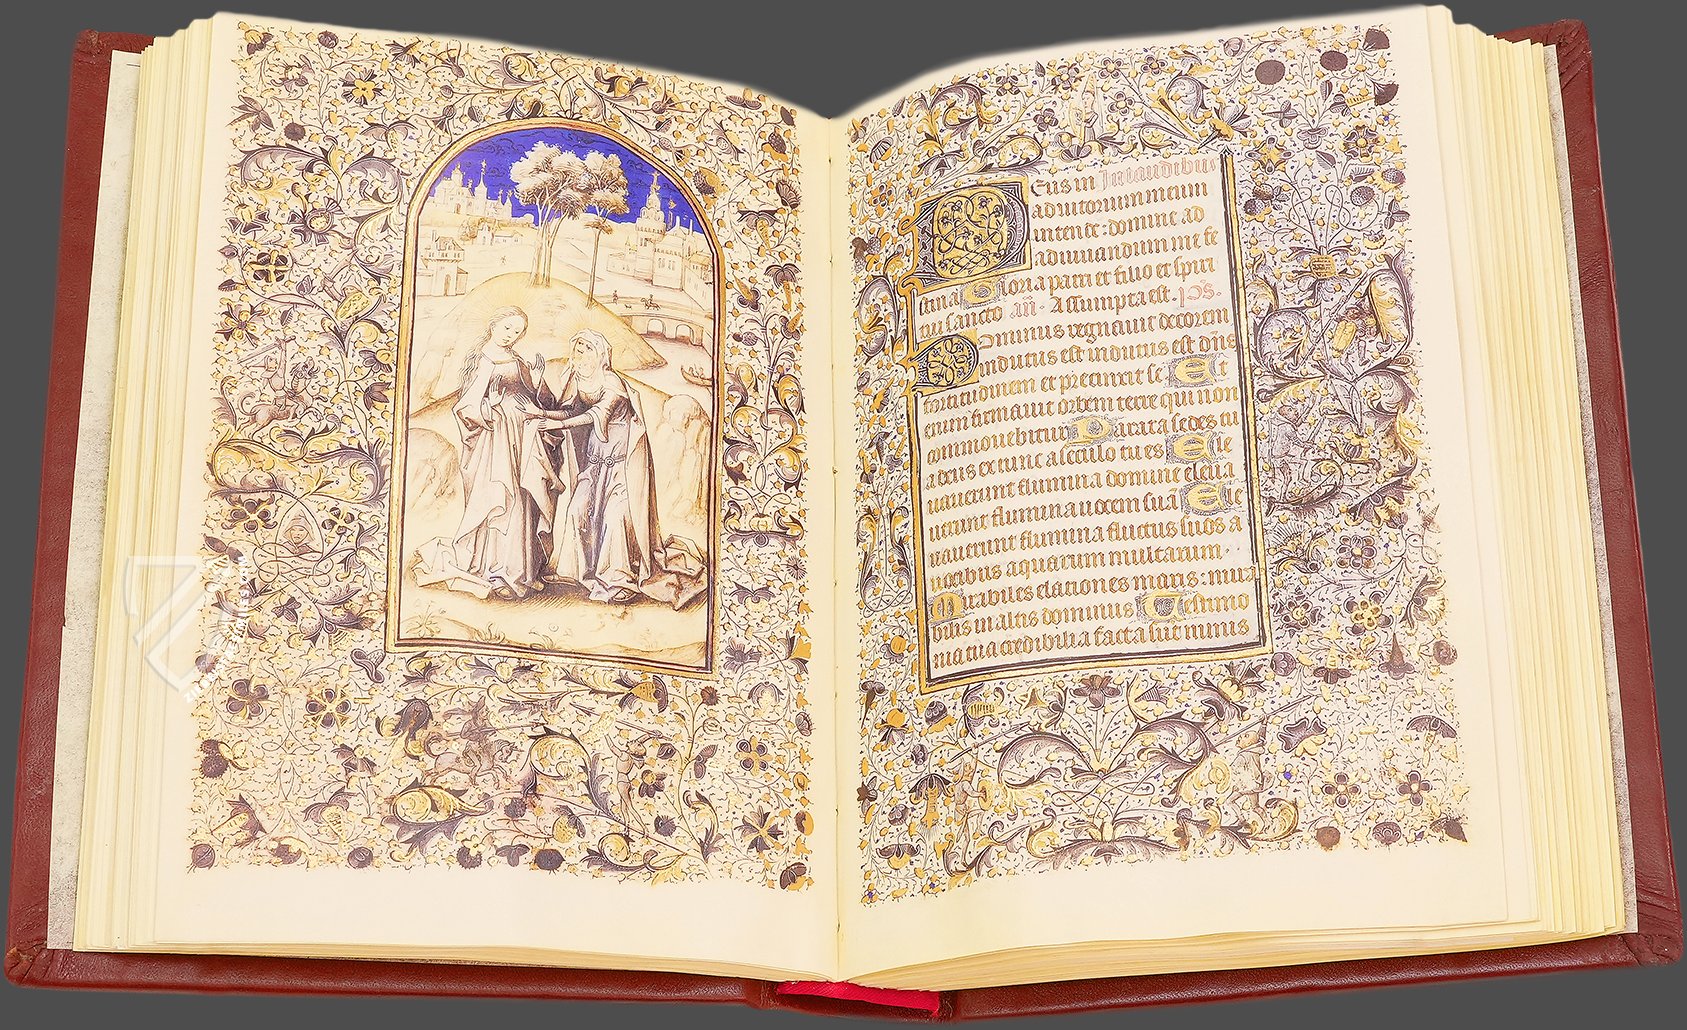 Deus in In laudibus
adiutorium meum
intende: domine ad
adiuuandum me fe
stina Gloria patri et filio et spiri
tui sancto añ. Assumpta est. ps.
Dominus regnauit decorem
indutus est indutus est dñs
fortitudinem et precinxit se Et
enim firmauit orbem terre qui non
commouebitur Parata sedes tu
a deus ex tunc a seculo tu es Ele
uauerunt flumina domine eleua
uerunt flumina uocem suã Ele
uauerunt flumina fluctus suos a
uocibus aquarum multarum.
Mirabiles elationes maris: mira
bilis in altis dominus Testimo
nia tua credibilia facta sũt nimis